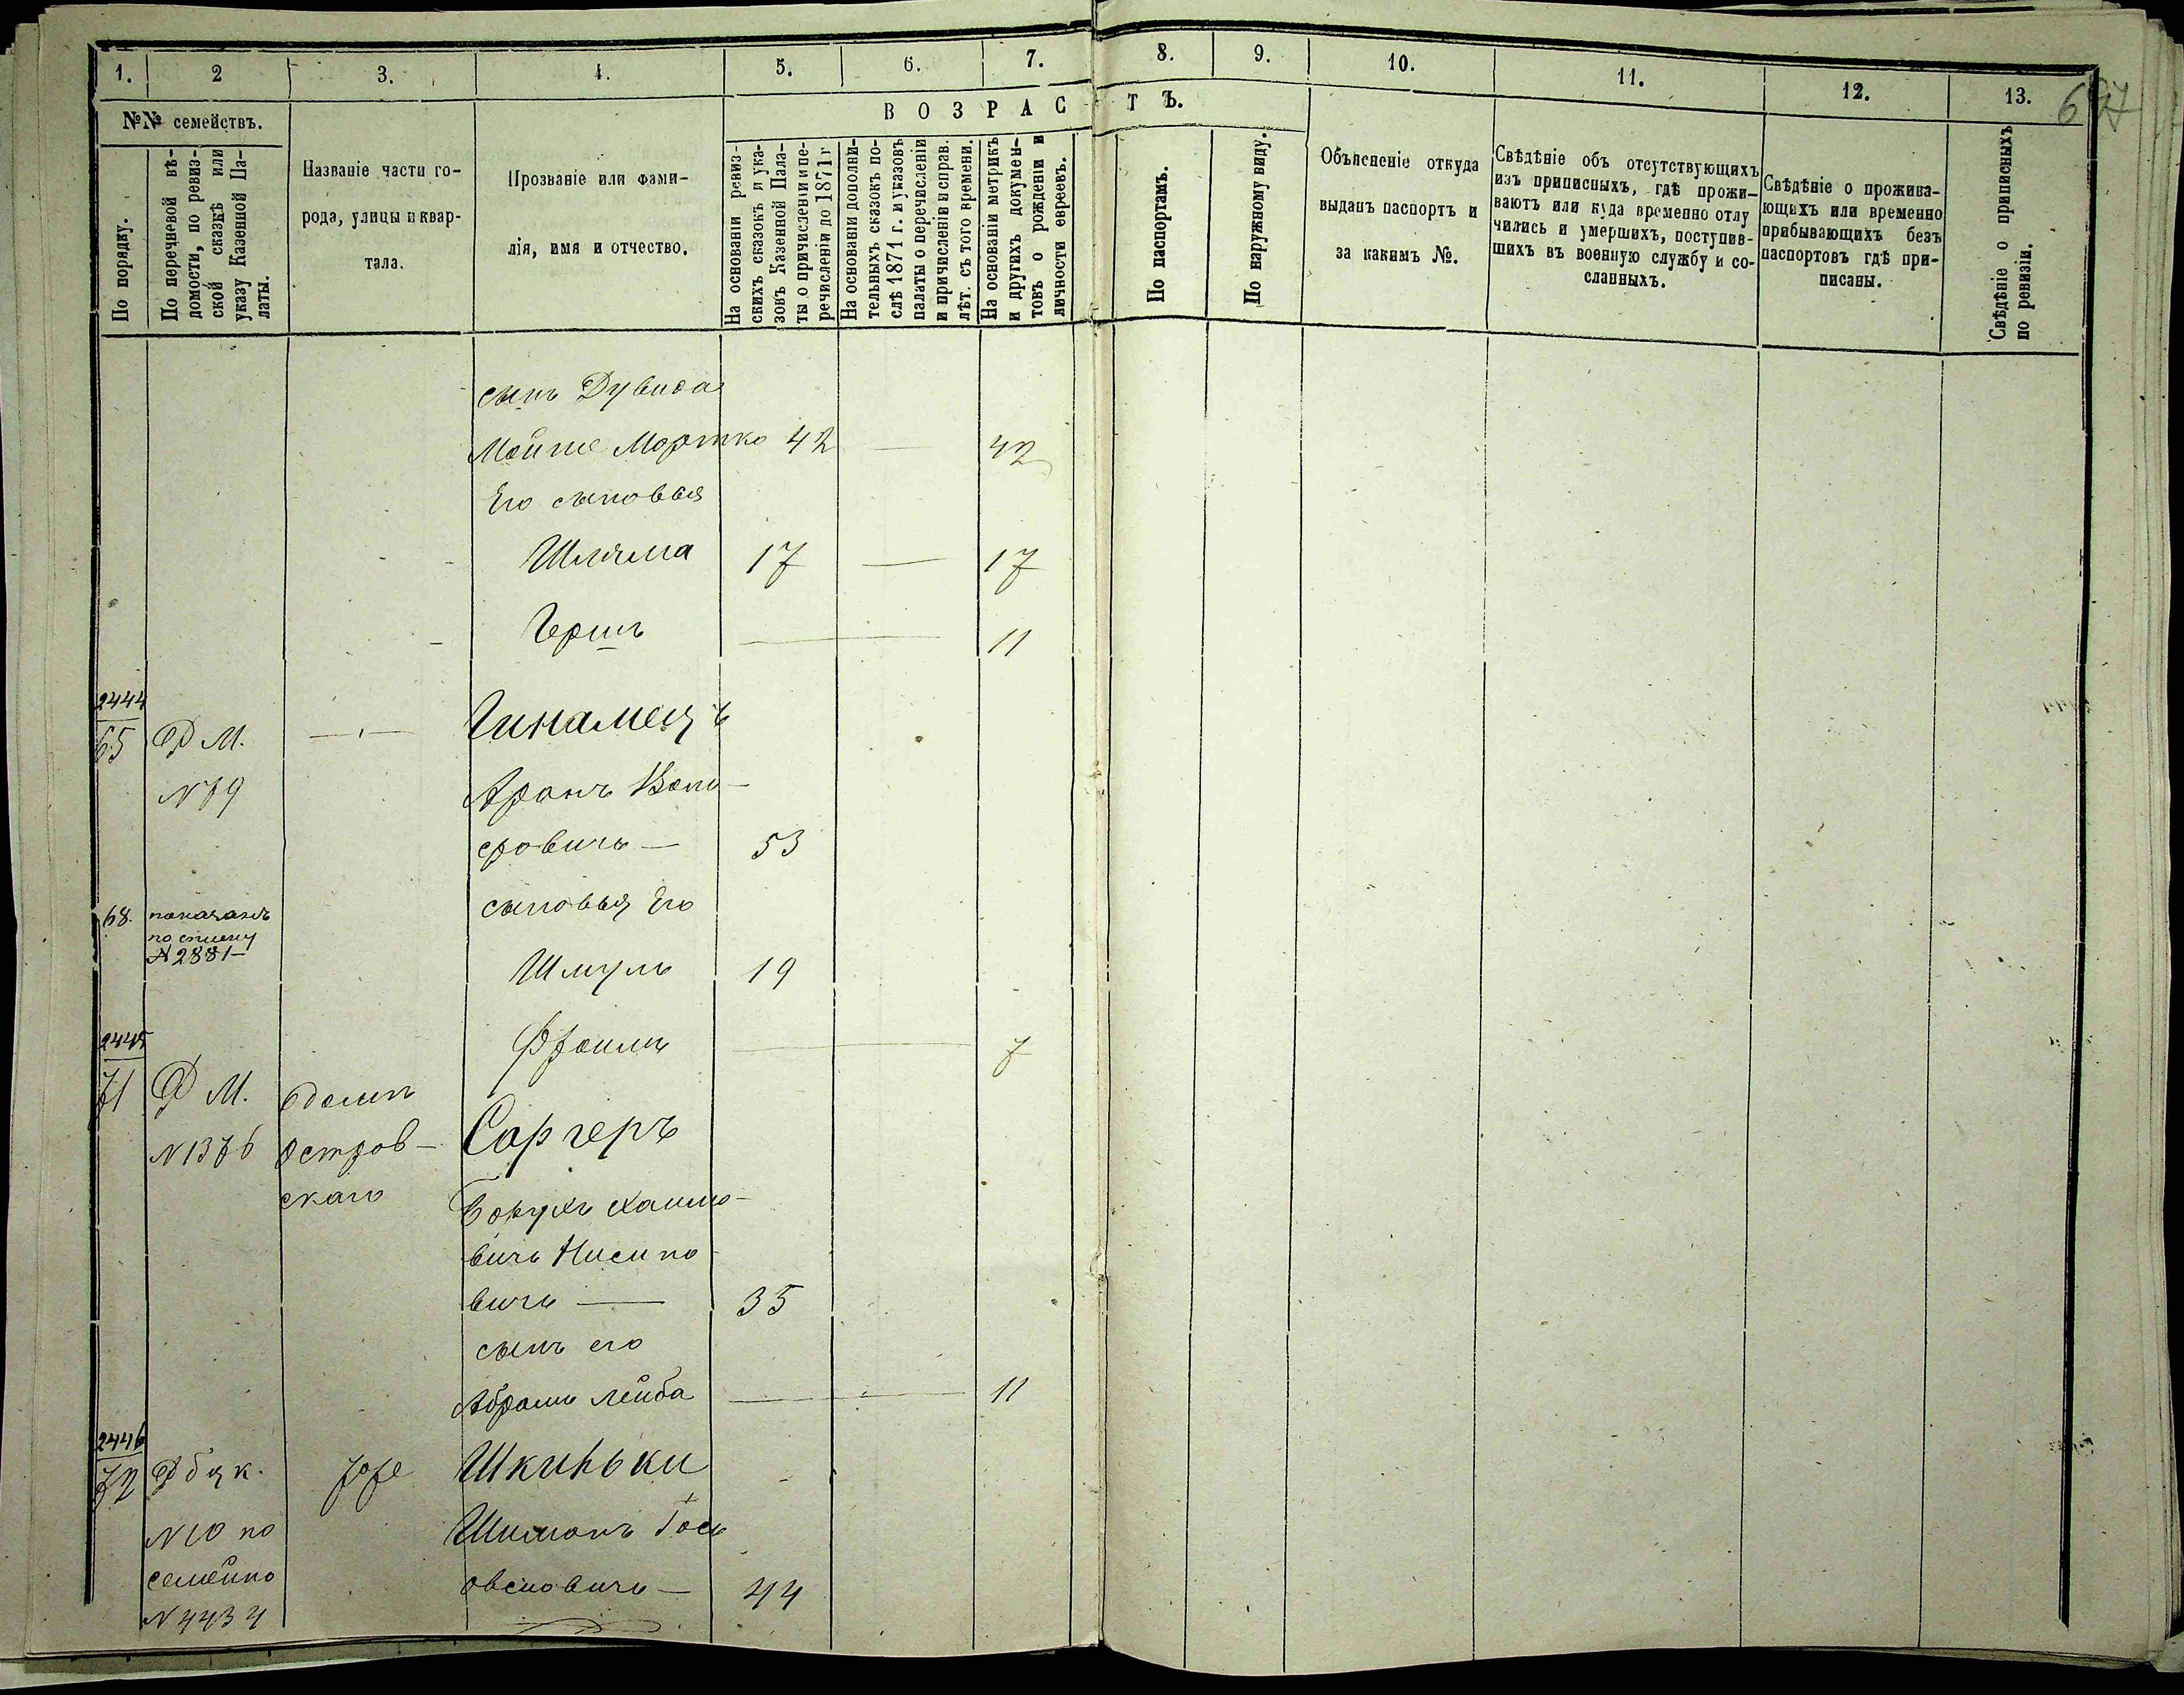 1. 2 3. 4. 5. 6. 7. 8. 9. 10. 11. 12. 13.
№№ семействъ.
По порядку.
По перечневой вѣ-
домости, по ревиз-
ской сказкѣ или
указу Казенной Па-
латы.
Названіе части го-
рода, улицы и квар-
тала.
Прозваніе или фами-
лія, имя и отчество.
ВОЗРАСТЪ.
На основаніи ревиз-
скихъ сказокъ и ука-
зовъ Казенной Пала-
ты о причисленіи и пе-
речисленіи до 1871 г
На основаніи дополни-
тельныхъ сказокъ по-
слѣ 1871 г. и указовъ
палаты о перечисленіи
и причисленіи и справ.
лѣт. съ того времени.
На основаніи метрикъ
и другихъ докумен-
товъ о рожденіи и
личности евреевъ.
По паспортамъ.
По наружному виду.
Объясненіе откуда
выданъ паспортъ и
за какимъ №.
Свѣдѣніе объ отсутствующихъ
изъ приписныхъ, гдѣ прожи-
ваютъ или куда временно отлу
чились и умершихъ, поступив-
шихъ въ военную службу и со-
сланныхъ.
Свѣдѣніе о прожива-
ющихъ или временно
прибывающихъ безъ
паспортовъ гдѣ при-
писаны.
Свѣдѣніе о приписныхъ
по ревизіи.
сынъ Дувида
Мойше Мортко 42 — 42
Его сыновья
Шляма 17 — 17
Гершъ — 11
2444
65 Ф М. — Гинамецъ
N 79 Аронъ Воль-
фовичъ — 53
68. показанъ сыновья Его
по списку
№ 2881 —
Шмуль 19
Фроимъ — 7
2445
71 Ф М. домъ
N 1376 Остров- Саргеръ
скаго Борухъ Хаимо-
вичъ Нисино
вичъ — 35
сынъ его
Абрамъ Лейба — 11
2446
72 Шкиньки
N 10 по Шимонъ
семейно
овсиовичъ — 44
N 4434